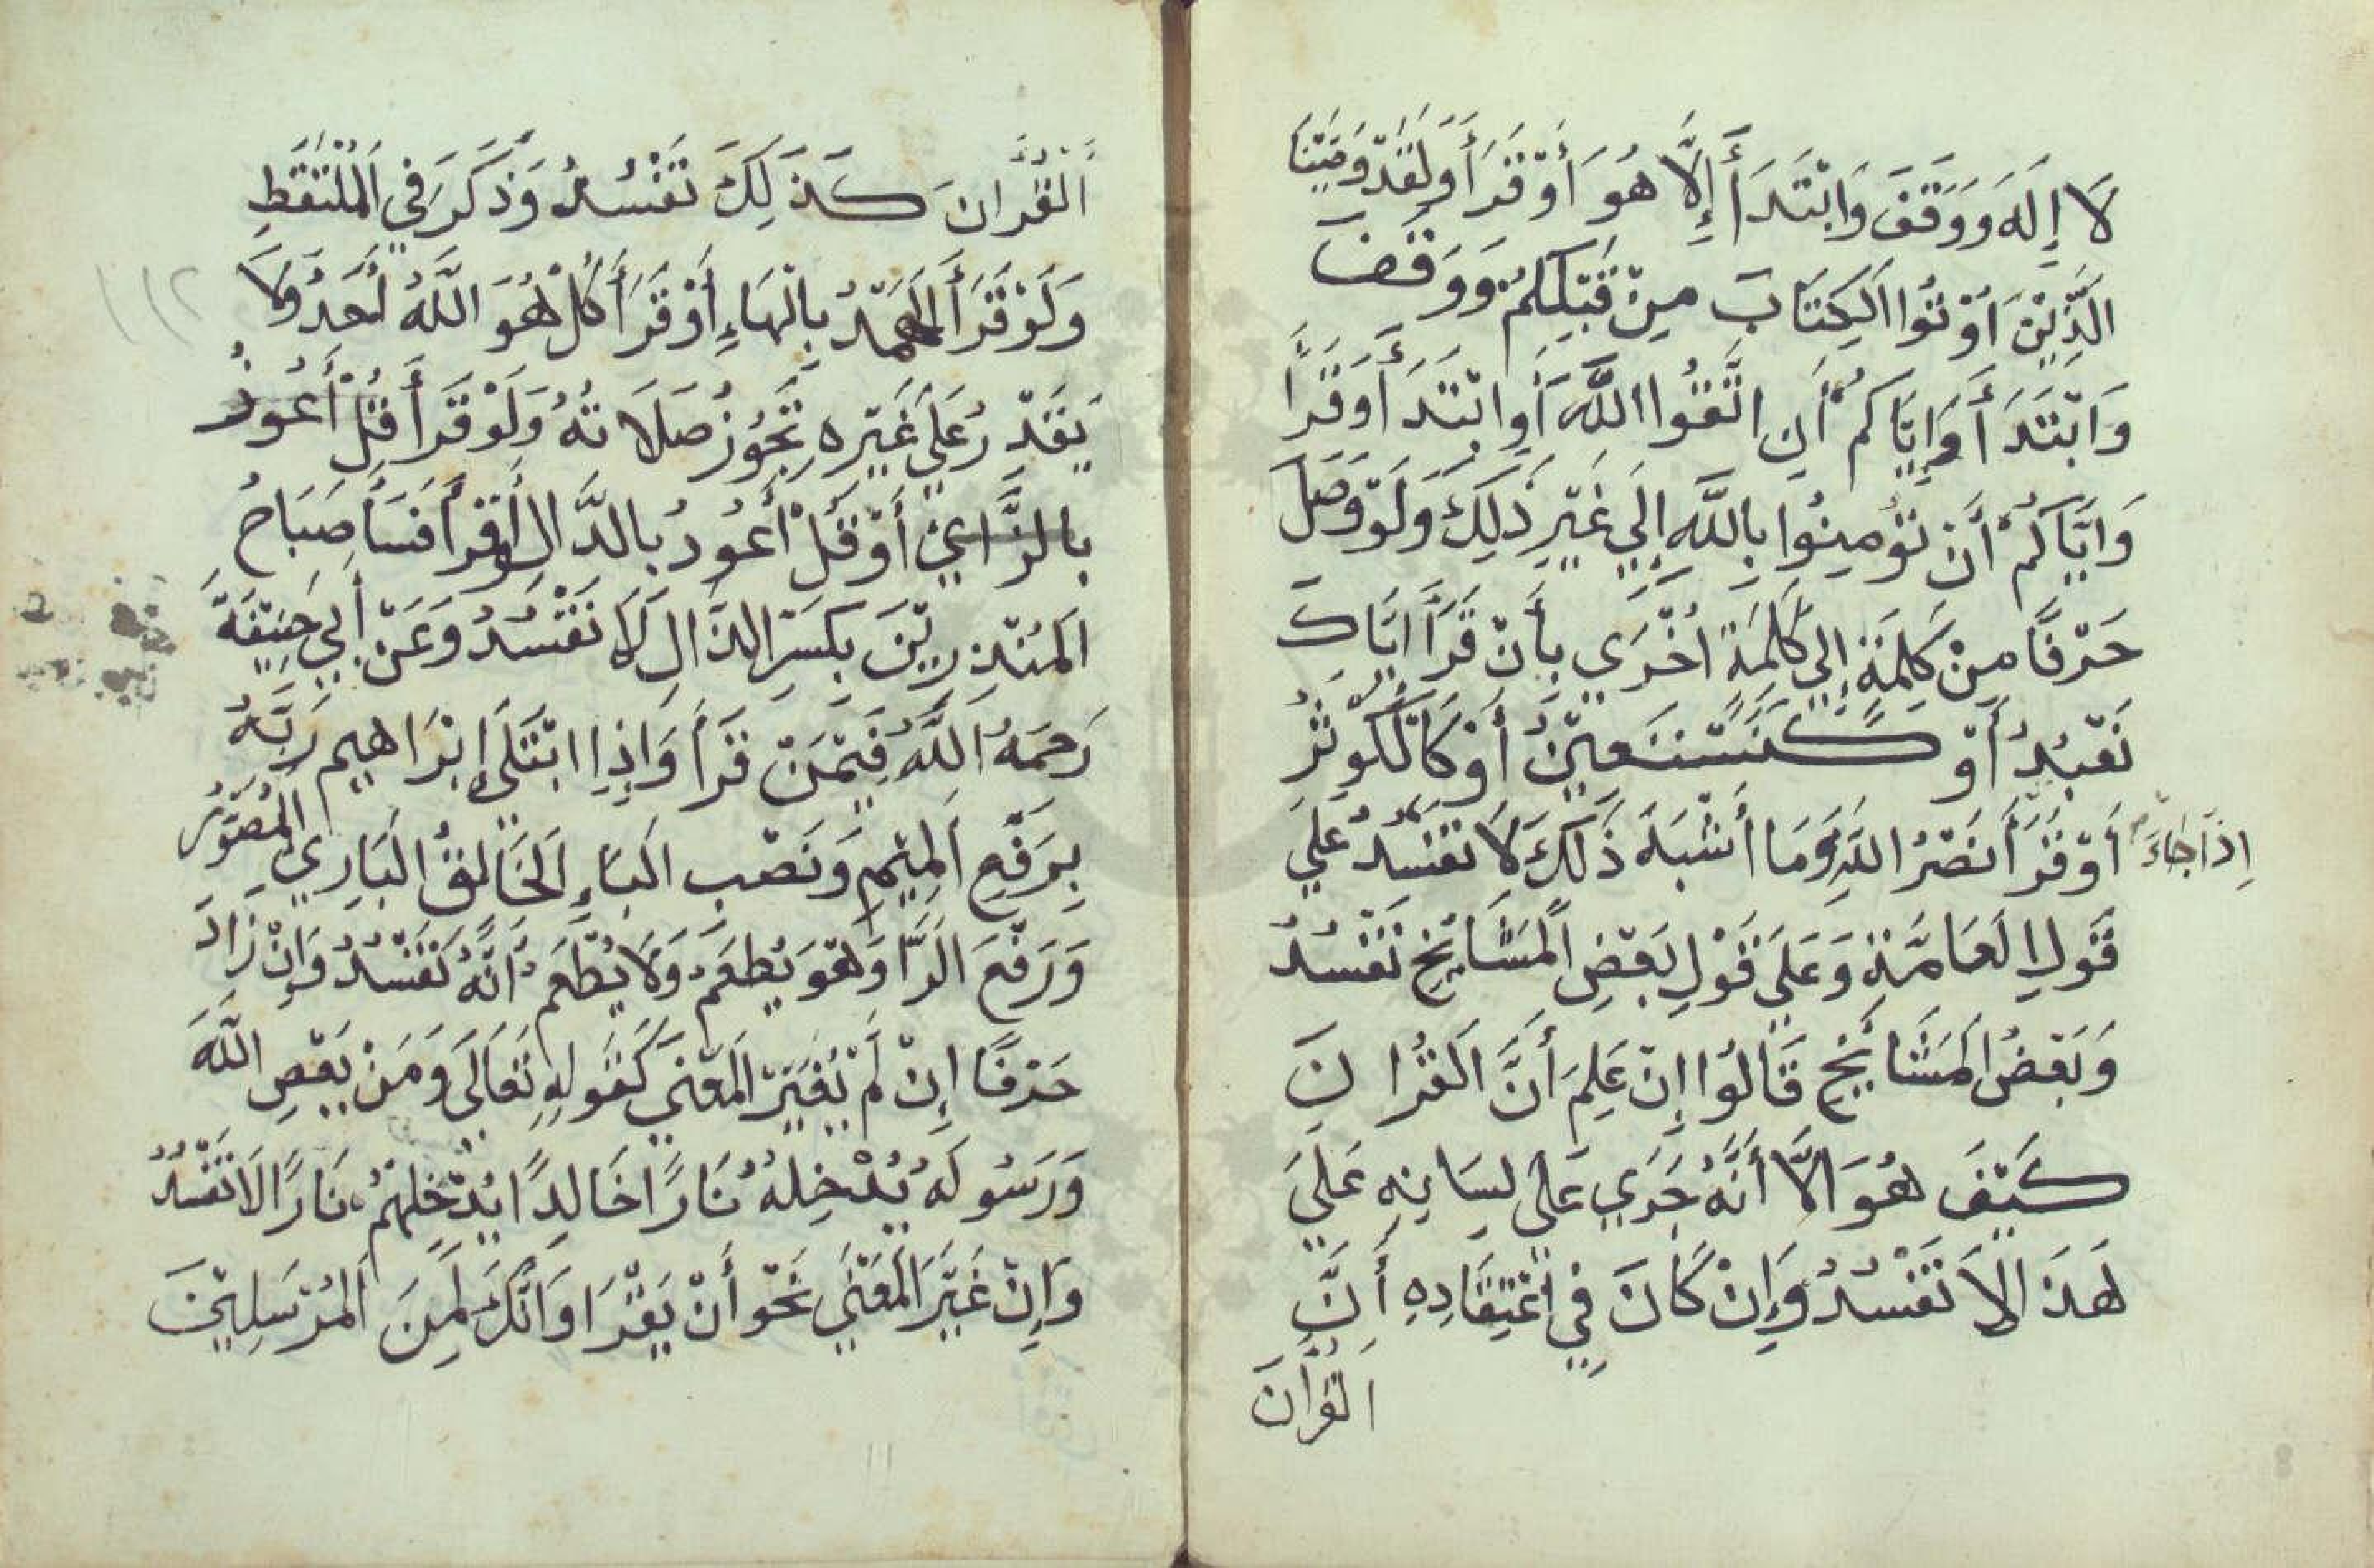 لَا إِلَهَ وَوَقَفَ وَابْتَدَأَ إِلَّا هُوَ أَوْ قَرَأَ وَلَقَدْ وَصَّيْنَا
الَّذِيْنَ أُوْتُوا الْكِتَابَ مِنْ قَبْلِكُمْ وَوَقَفَ
وَابْتَدَأَ وَإِيَّاكُمْ أَنِ اتَّقُوا اللَّهَ أَوِ ابْتَدَأَ وَقَرَأَ
وَإِيَّاكُمْ أَنْ تُؤْمِنُوا بِاللَّهِ إِلَى غَيْرِ ذَلِكَ وَلَوْ وَصَلَ
حَرْفًا مِنْ كَلِمَةٍ إِلَى كَلِمَةٍ أُخْرَى بِأَنْ قَرَأَ إِيَّاكَ
نَعْبُدُ أَوْ كَنَسْتَعِيْنُ أَوْ كَالْكَوْثَرَ
إِذَا جَاءَ أَوْ قَرَأَ نَصْرُ اللَّهِ وَمَا أَشْبَهَ ذَلِكَ لَا تَفْسُدُ عَلَى
قَوْلِ الْعَامَّةِ وَعَلَى قَوْلِ بَعْضِ الْمَشَايِخِ تَفْسُدُ
وَبَعْضُ الْمَشَايِخِ قَالُوا إِنْ عَلِمَ أَنَّ الْقُرْانَ
كَيْفَ هُوَ إِلَّا أَنَّهُ جَرَى عَلَى لِسَانِهِ عَلَى
هَذَا لَا تَفْسُدُ وَإِنْ كَانَ فِي اعْتِقَادِهِ أَنَّ
الْقُرْانَ
الْقُرْانَ كَذَلِكَ تَفْسُدُ وَذَكَرَ فِي الْمُلْتَقَطِ
وَلَوْ قَرَأَ الْهَمْدُ بِالْهَاءِ أَوْ قَرَأَ كُلْ هُوَ اللَّهُ أَحَدٌ وَلَا
يَقْدِرُ عَلَى غَيْرِهِ تَجُوْزُ صَلَاتُهُ وَلَوْ قَرَأَ قُلْ أَعُوذُ
بِالزَّايِ أَوْ قُلْ أَعُودُ بِالدَّالِ أَوْ قَرَأَ فَسَاءَ صَبَاحُ
الْمُنْذِرِيْنَ بِكَسْرِ الذَّالِ لَا تَفْسُدُ وَعَنْ أَبِي حَنِيْفَةَ
رَحِمَهُ اللَّهُ فِيْمَنْ قَرَأَ وَإِذِا ابْتَلَى إِبْرَاهِيم رَبَّهُ
بِرَفْعِ الْمِيْمِ وَنَصْبِ الْبَاءِ الْخَالِقُ الْبَارِيُ الْمُصَوَّرُ
وَرَفْعَ الرَّا وَهُوَ يُطْعَمُ وَلَا يُطْعِمُ أَنَّهُ تَفْسُدُ وَإِنْ زَادَ
حَرْفًا إِنْ لَمْ يُغَيِّرْ الْمَعْنَى كَقَوْلِهِ تَعَالَى وَمَنْ يَعْصِ اللَّهَ
وَرَسُولَهُ يُدْخِلْهُ نَارًا خَالِدًا يُدْخِلْهُمْ نَارًا لَا تَفْسُدُ
وَإِنْ غَيَّرَ الْمَعْنَى نَحْوَ أَنْ يَقْرَا وَانَّكَ لَمِنَ الْمُرْسَلِيْنَ
١١٢